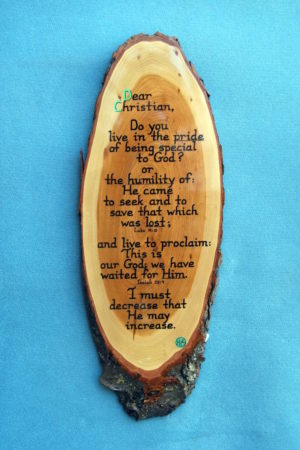 Dear
Christian,
Do you
live in the pride
of being special
to God?
or
the humility of:
He came
to seek and to
save that which
was lost;
Luke 19:10
and live to proclaim:
This is
our God; we have
waited for Him.
Isaiah 25:9
I must
decrease that
He may
increase.